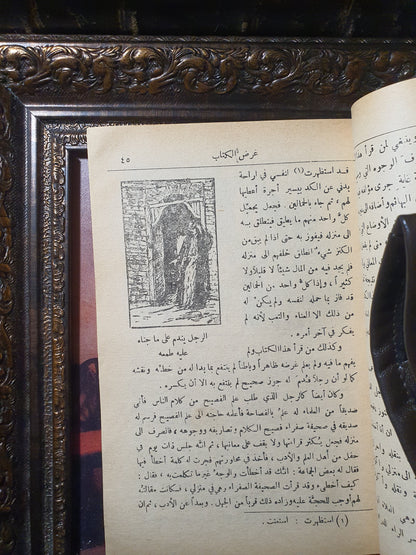 عرض الكتاب
٤٥
قد استظهرت (١) لنفسي في اراحة
بدني عن الكد بيسير أجرة أعطيها
لهم ، ثم جاء بالحمالين . فجعل يحمّل
كلّ واحد منهم ما يطيق فينطلق به
الى منزله فيفوز به حتى اذا لم يبق من
الكنز شيء انطلق خلفهم الى منزله
فلم يجد فيه من المال شيئاً لا قليلاً ولا
كثيراً ، واذا كلّ واحد من الحمالين
قد فاز بما حمله لنفسه ولم يكن له
من ذلك الا العناء والتعب لأنه لم
يفكر في آخر أمره .
الرجل يندم على ما جناه
عليه طمعه
وكذلك من قرأ هذا الكتاب ولم
يفهم ما فيه ولم يعلم غرضه ظاهراً وباطناً لم ينتفع بما بدا له من خطّه ونقشه
كما لو أن رجلاً قُدّم له جوز صحيح لم ينتفع به الا أن يكسره .
وكان أيضاً كالرجل الذي طلب علم الفصيح من كلام الناس فأتى
صديقاً من العلماء له علم بالفصاحة فأعلمه حاجته الى علم الفصيح فرسم له
صديقه في صحيفة صفراء فصيح الكلام وتصاريفه ووجوهه ، فانصرف الى
منزله فجعل يُكثر قراءتها ولا يقف على معانيها ، ثم انّه جلس ذات يوم في
محفل من أهل العلم والأدب ، فأخذ في محاورتهم فجرت له كلمة أخطأ فيها
فقال له بعض الجماعة : انّك قد أخطأت والوجه غير ما تكلمت به ، فقال :
كيف أخطىء وقد قرأت الصحيفة الصفراء وهي في منزلي ، فكانت مقالته
لهم أوجب للحجّة عليه وزاده ذلك قرباً من الجهل ، وبعداً عن الأدب ، ثم ان
(١) استظهرت : استعنت .